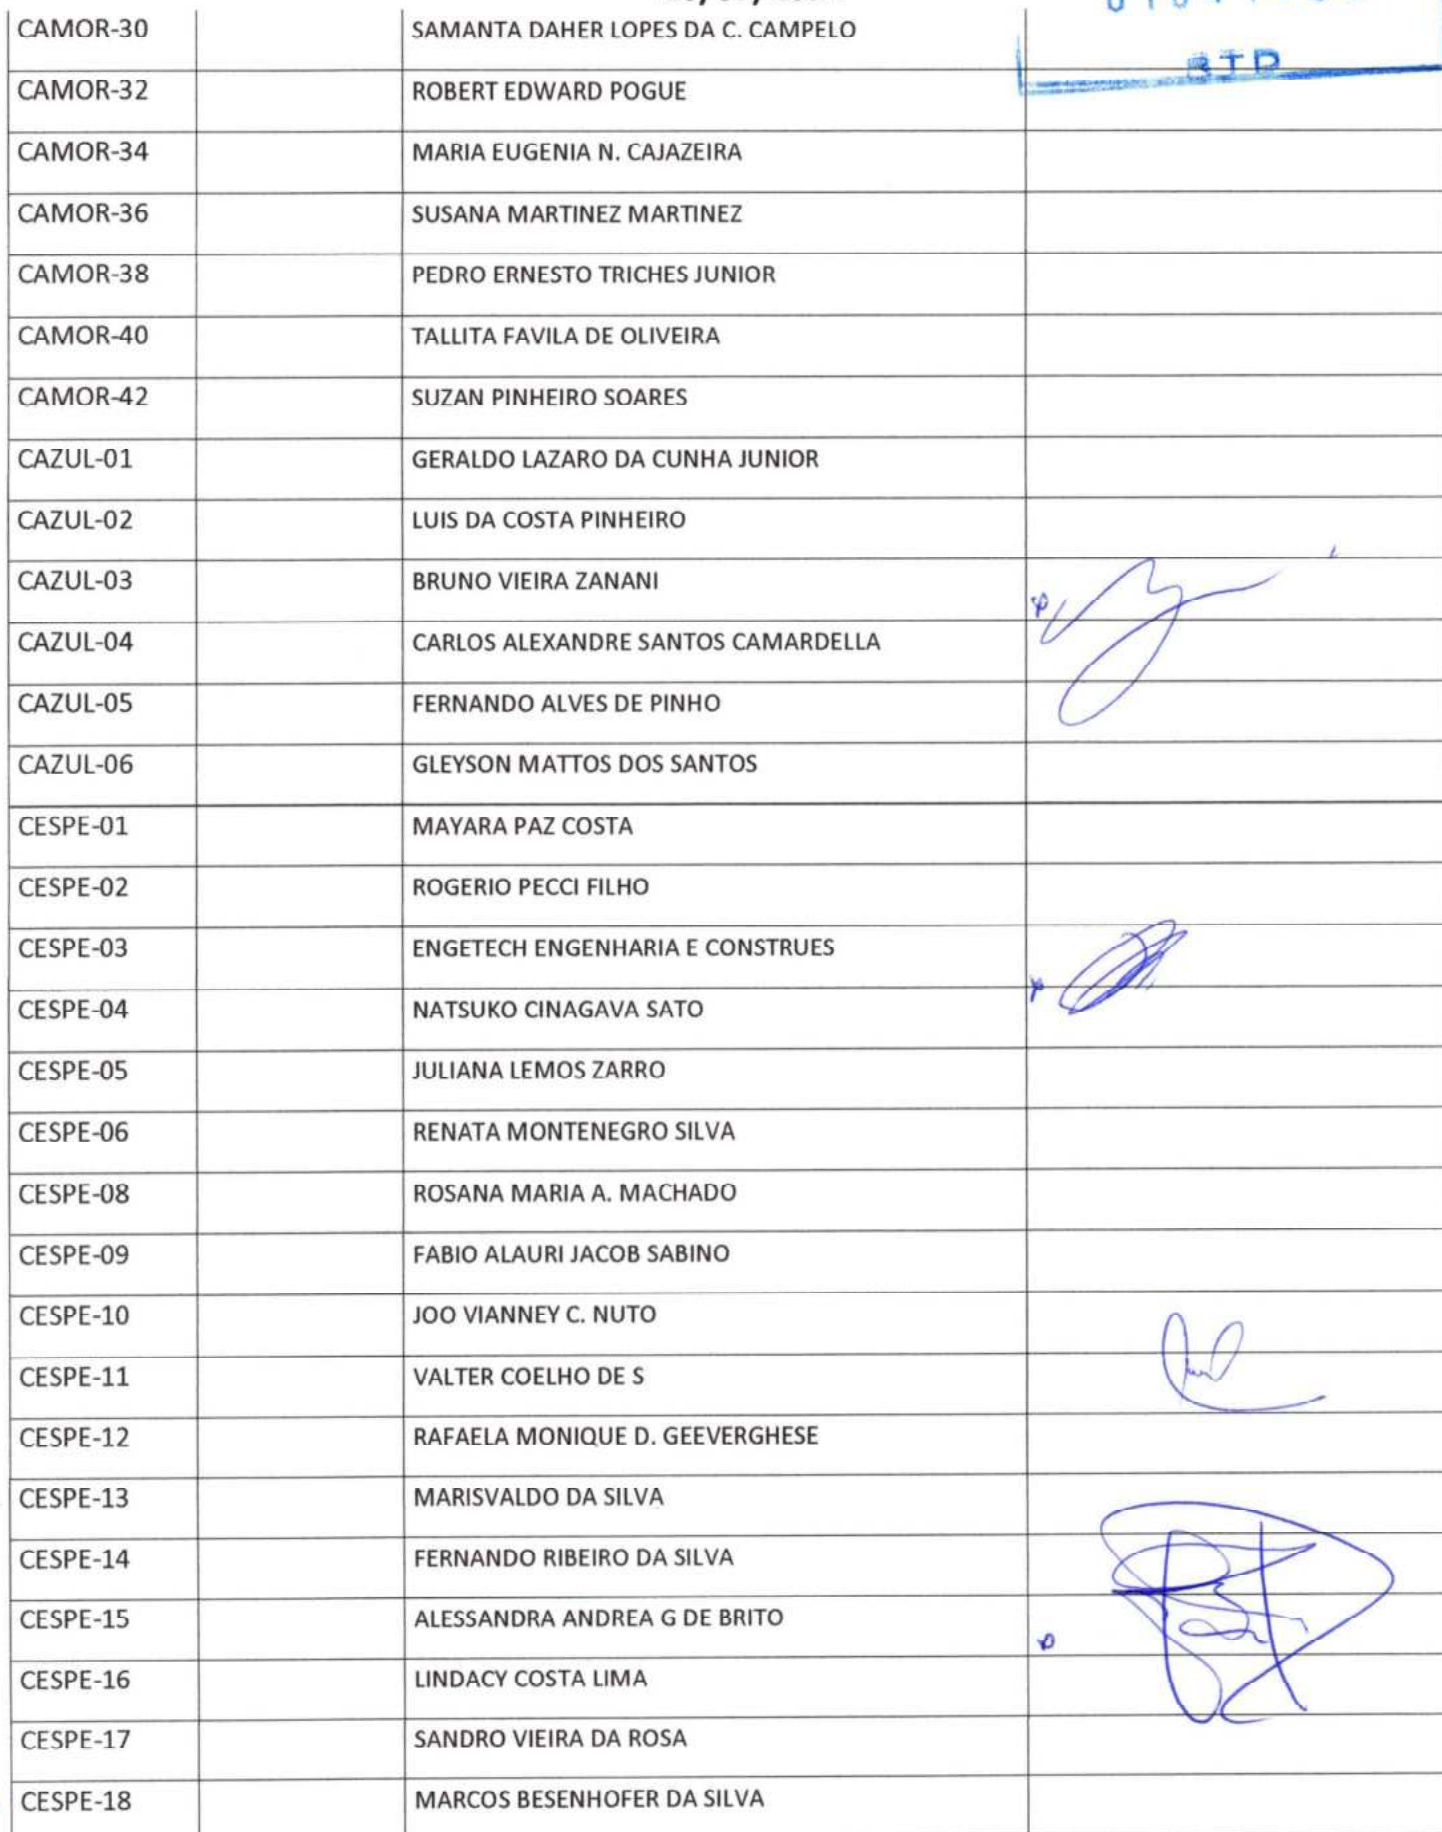 CAMOR-30 SAMANTA DAHER LOPES DA C. CAMPELO
CAMOR-32 ROBERT EDWARD POGUE
CAMOR-34 MARIA EUGENIA N. CAJAZEIRA
CAMOR-36 SUSANA MARTINEZ MARTINEZ
CAMOR-38 PEDRO ERNESTO TRICHES JUNIOR
CAMOR-40 TALLITA FAVILA DE OLIVEIRA
CAMOR-42 SUZAN PINHEIRO SOARES
CAZUL-01 GERALDO LAZARO DA CUNHA JUNIOR
CAZUL-02 LUIS DA COSTA PINHEIRO
CAZUL-03 BRUNO VIEIRA ZANANI
CAZUL-04 CARLOS ALEXANDRE SANTOS CAMARDELLA
CAZUL-05 FERNANDO ALVES DE PINHO
CAZUL-06 GLEYSON MATTOS DOS SANTOS
CESPE-01 MAYARA PAZ COSTA
CESPE-02 ROGERIO PECCI FILHO
CESPE-03 ENGETECH ENGENHARIA E CONSTRUES
CESPE-04 NATSUKO CINAGAVA SATO
CESPE-05 JULIANA LEMOS ZARRO
CESPE-06 RENATA MONTENEGRO SILVA
CESPE-08 ROSANA MARIA A. MACHADO
CESPE-09 FABIO ALAURI JACOB SABINO
CESPE-10 JOO VIANNEY C. NUTO
CESPE-11 VALTER COELHO DE S
CESPE-12 RAFAELA MONIQUE D. GEEVERGHESE
CESPE-13 MARISVALDO DA SILVA
CESPE-14 FERNANDO RIBEIRO DA SILVA
CESPE-15 ALESSANDRA ANDREA G DE BRITO
CESPE-16 LINDACY COSTA LIMA
CESPE-17 SANDRO VIEIRA DA ROSA
CESPE-18 MARCOS BESENHOFER DA SILVA